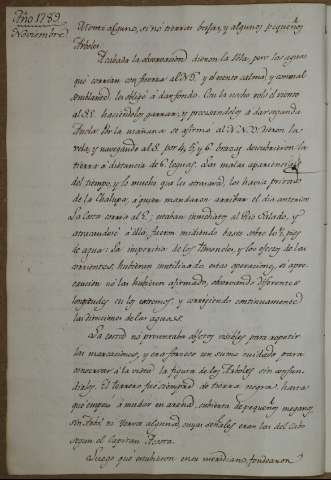 Año 1789
Noviembre
Monte alguno, si nó tierras bajas, y algunos pequeños
Arboles.
Acabada la observacion dieron la Vela, pero las aguas
que corrian con fuerza al N.E. y el viento calmar, y con mal
semblante, les obligó á dar fondo. Con la noche roló el viento
al S.E. haciendoles garrar, y precisandoles á dar segunda
Ancla. Por la mañana se afirmó al N.N.O. dieron la
vela, y navegando al S. por 4, 5, y 6 brazas descubrieron la
tierra á distancia de 6 leguas. Las malas apariencias
del tiempo, y lo mucho que les atrasaba, los havia privado
de la Chalupa, á quien mandaron arribar el dia anterior.
La Costa corria al E.; estaban inmediatos al Rio Salado, y
atracandose á ella, fueron midiendo hasta sobre los pies
de agua: La impericia de los Timoneles, y los efectos de las
corrientes hubieran inutilizado estas operaciones, si á pre-
caucion no las hubieran afirmado, observando diferentes
longitudes en los extremos, y corrigiendo continuamente
las direcciones de las aguas.
La tierra no presentaba objetos visibles para repetir
las marcaciones, y era forzoso un sumo cuidado, para
conservar á la vista la figura de los Arboles sin confun-
dirlos. El terreno fue siempre de tierra negra, hasta
que empezó á mudar en arena, cubierta de pequeños meganos,
sin Arbol, ni Yerva alguna, cuyas señales eran las del Cabo
segun el Capitan Acosta.
Luego que estubieron en su meridiano, fondearon